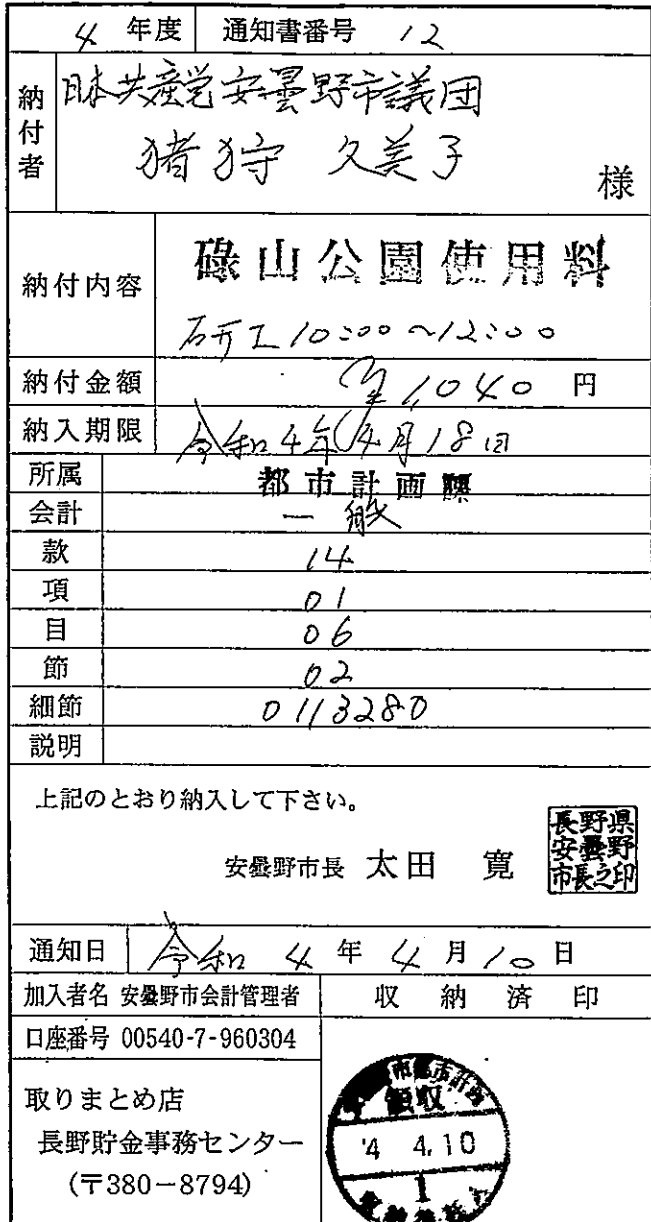 4 年度 通知書番号 12
納付者
日本共産党安曇野市議団
猪狩 久美子 様
納付内容 碌山公園使用料
研工 10:00~12:00
納付金額 ¥1,040 円
納入期限 令和4年4月18日
所属 都市計画課
会計 一般
款 14
項 01
目 06
節 02
細節 0113280
説明
上記のとおり納入して下さい。
安曇野市長 太田 寛
長野県
安曇野
市長之印
通知日 令和 4 年 4 月 10 日
加入者名 安曇野市会計管理者 収納済印
口座番号 00540-7-960304
取りまとめ店
長野貯金事務センター
(〒380-8794)
市都市計画
領収
'4 4.10
1